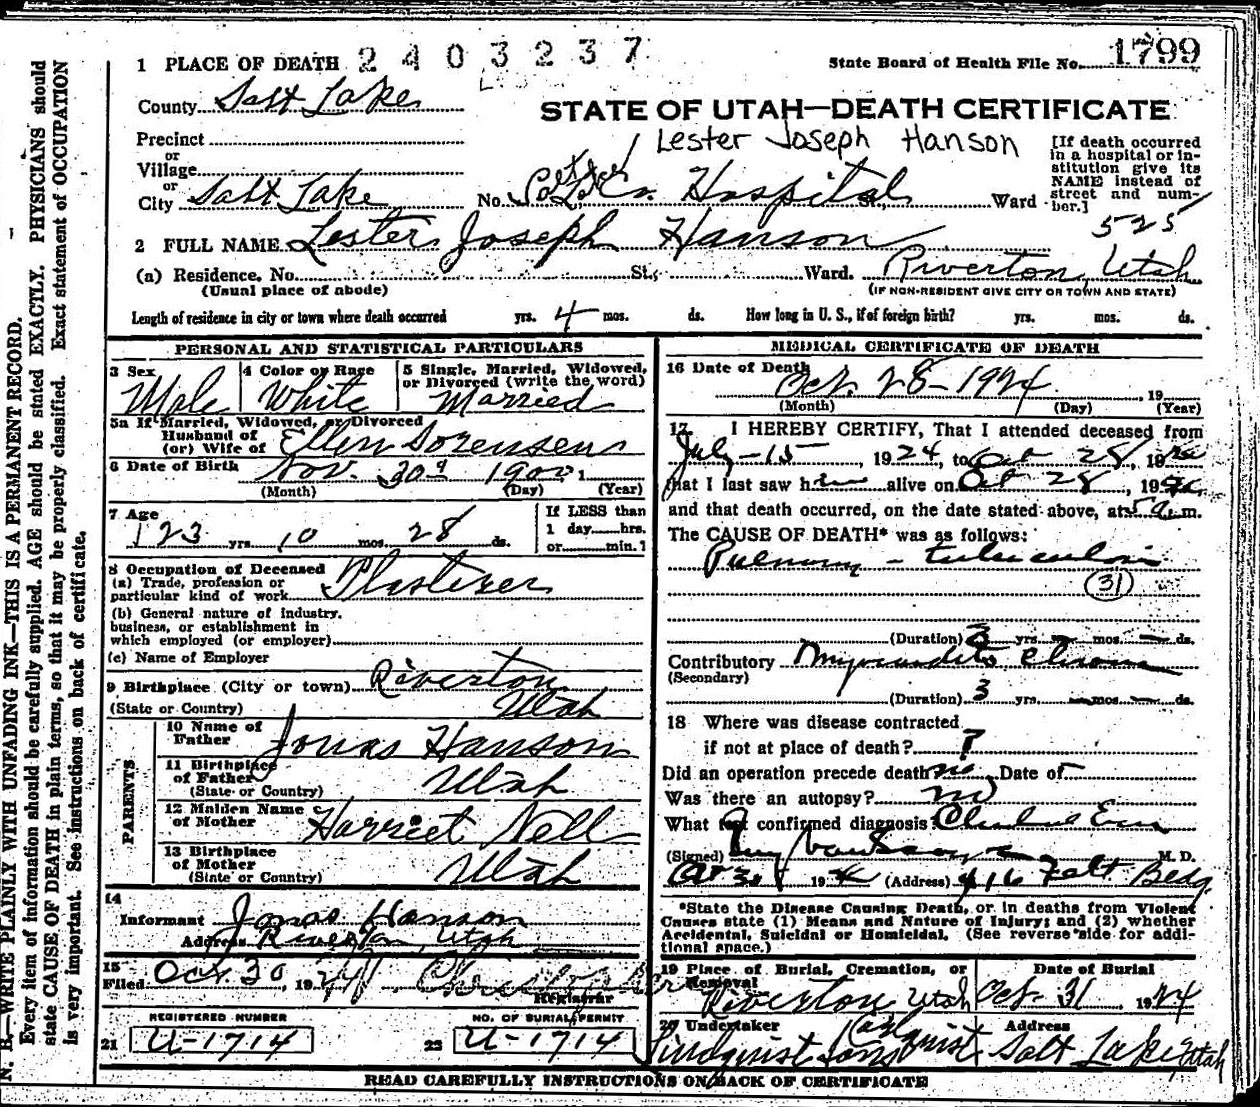 1 PLACE OF DEATH 2403237
State Board of Health File No. 1799
County Salt Lake
STATE OF UTAH—DEATH CERTIFICATE
Precinct
or
Village
or
City Salt Lake No. Salt Lake Co. Hospital St., Ward
Lester Joseph Hanson
[If death occurred in a hospital or institution give its NAME instead of street and number.]
525
2 FULL NAME Lester Joseph Hanson
(a) Residence. No. St., Ward. Riverton, Utah
(Usual place of abode) (IF NON-RESIDENT GIVE CITY OR TOWN AND STATE)
Length of residence in city or town where death occurred yrs. 4 mos. ds. How long in U. S., if of foreign birth? yrs. mos. ds.
PERSONAL AND STATISTICAL PARTICULARS
3 Sex Male
4 Color or Race White
5 Single, Married, Widowed, or Divorced (write the word) Married
5a If Married, Widowed, or Divorced
Husband of
(or) Wife of Ellen Sorensen
6 Date of Birth Nov. 30 1900 1
(Month) (Day) (Year)
7 Age 23 yrs. 10 mos. 28 ds.
If LESS than
1 day hrs.
or min. ?
8 Occupation of Deceased
(a) Trade, profession or
particular kind of work Plasterer
(b) General nature of industry.
business, or establishment in
which employed (or employer)
(c) Name of Employer
9 Birthplace (City or town) Riverton
(State or Country) Utah
PARENTS
10 Name of
Father Jonas Hanson
11 Birthplace
of Father
(State or Country) Utah
12 Maiden Name
of Mother Harriet Nell
13 Birthplace
of Mother
(State or Country) Utah
14
Informant Jonas Hanson
Address Riverton, Utah
15
Filed Oct. 30, 1924
Registrar
REGISTERED NUMBER
21 U-1714
NO. OF BURIAL PERMIT
22 U-1714
MEDICAL CERTIFICATE OF DEATH
16 Date of Death Oct. 28-1924, 19
(Month) (Day) (Year)
17 I HEREBY CERTIFY, That I attended deceased from
July-15, 1924, to Oct 28, 19
that I last saw him alive on Oct 28, 1924,
and that death occurred, on the date stated above, at 5 a.m.
The CAUSE OF DEATH* was as follows:
Pulmonary - tuberculosis
31
(Duration) 3 yrs. mos. ds.
Contributory Myocarditis Chronic
(Secondary)
(Duration) 3 yrs. mos. ds.
18 Where was disease contracted
if not at place of death? ?
Did an operation precede death no Date of
Was there an autopsy? no
What test confirmed diagnosis
(Signed) M. D.
19 (Address) 416 Felt Bldg.
*State the Disease Causing Death, or in deaths from Violent
Causes state (1) Means and Nature of Injury; and (2) whether
Accidental, Suicidal or Homicidal. (See reverse side for additional space.)
19 Place of Burial, Cremation, or
Removal Riverton Utah
Date of Burial
Oct. 31 1924
20 Undertaker Address
Lindquist Sons Salt Lake, Utah
READ CAREFULLY INSTRUCTIONS ON BACK OF CERTIFICATE
N. B.—WRITE PLAINLY WITH UNFADING INK—THIS IS A PERMANENT RECORD.
Every item of information should be carefully supplied. AGE should be stated EXACTLY. PHYSICIANS should
state CAUSE OF DEATH in plain terms, so that it may be properly classified. Exact statement of OCCUPATION
is very important. See instructions on back of certificate.